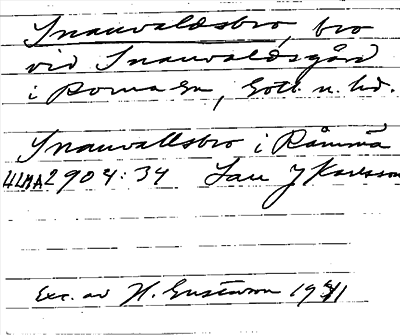 Snauvaldsbro, bro
vid Snauvaldsgård
i Roma sn, Gotl. n. hd.
Snauvallsbro i Råmmå
ULMA 2904:34 Lau J Karlsson
Exc. av H. Gustavson 1941